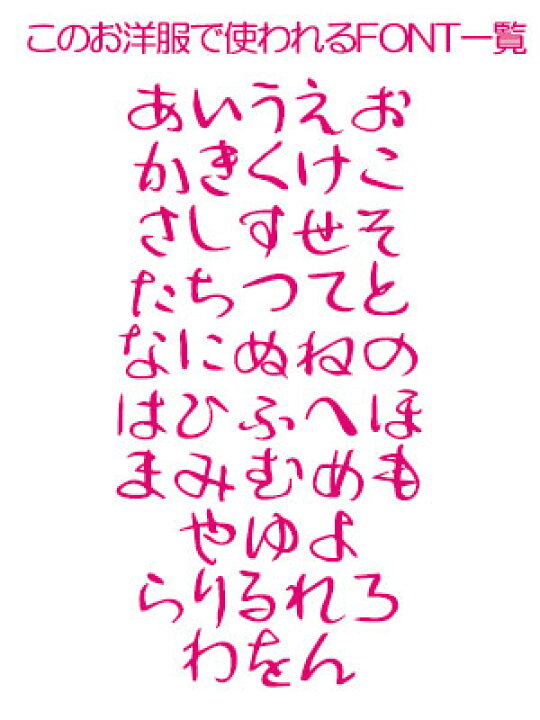 このお洋服で使われるFONT一覧
あいうえお
かきくけこ
さしすせそ
たちつてと
なにぬねの
はひふへほ
まみむめも
やゆよ
らりるれろ
わをん